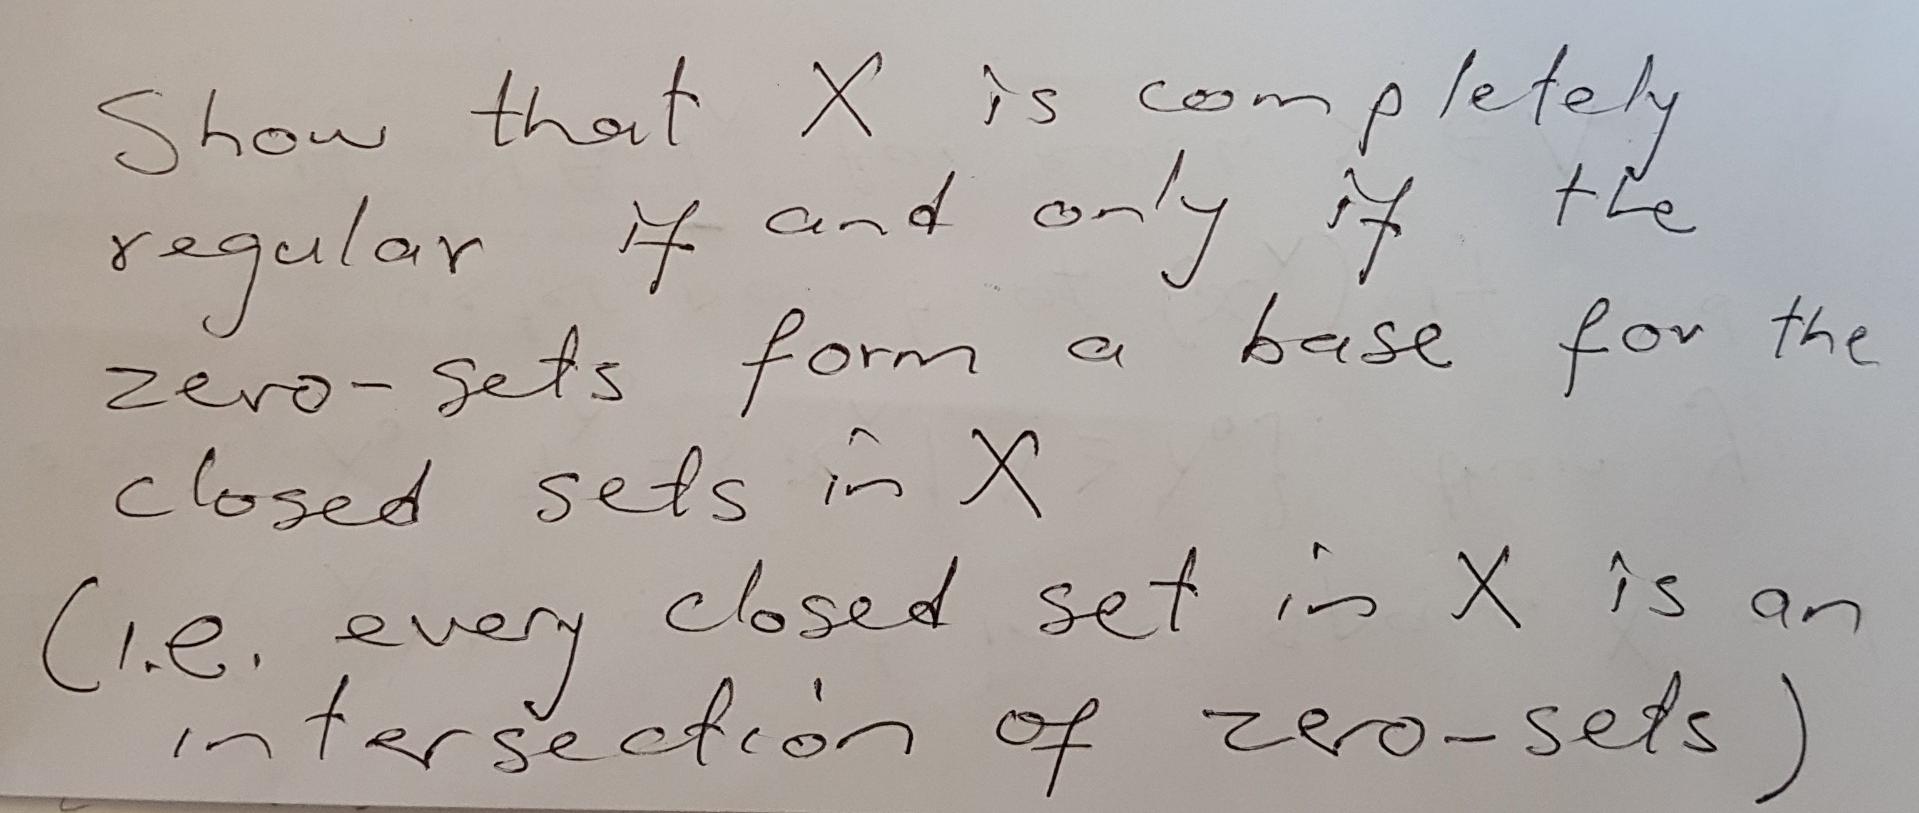 Show that X is completely
regular if and only if the
zero-sets form a base for the
closed sets in X
(i.e. every closed set in X is an
intersection of zero-sets)